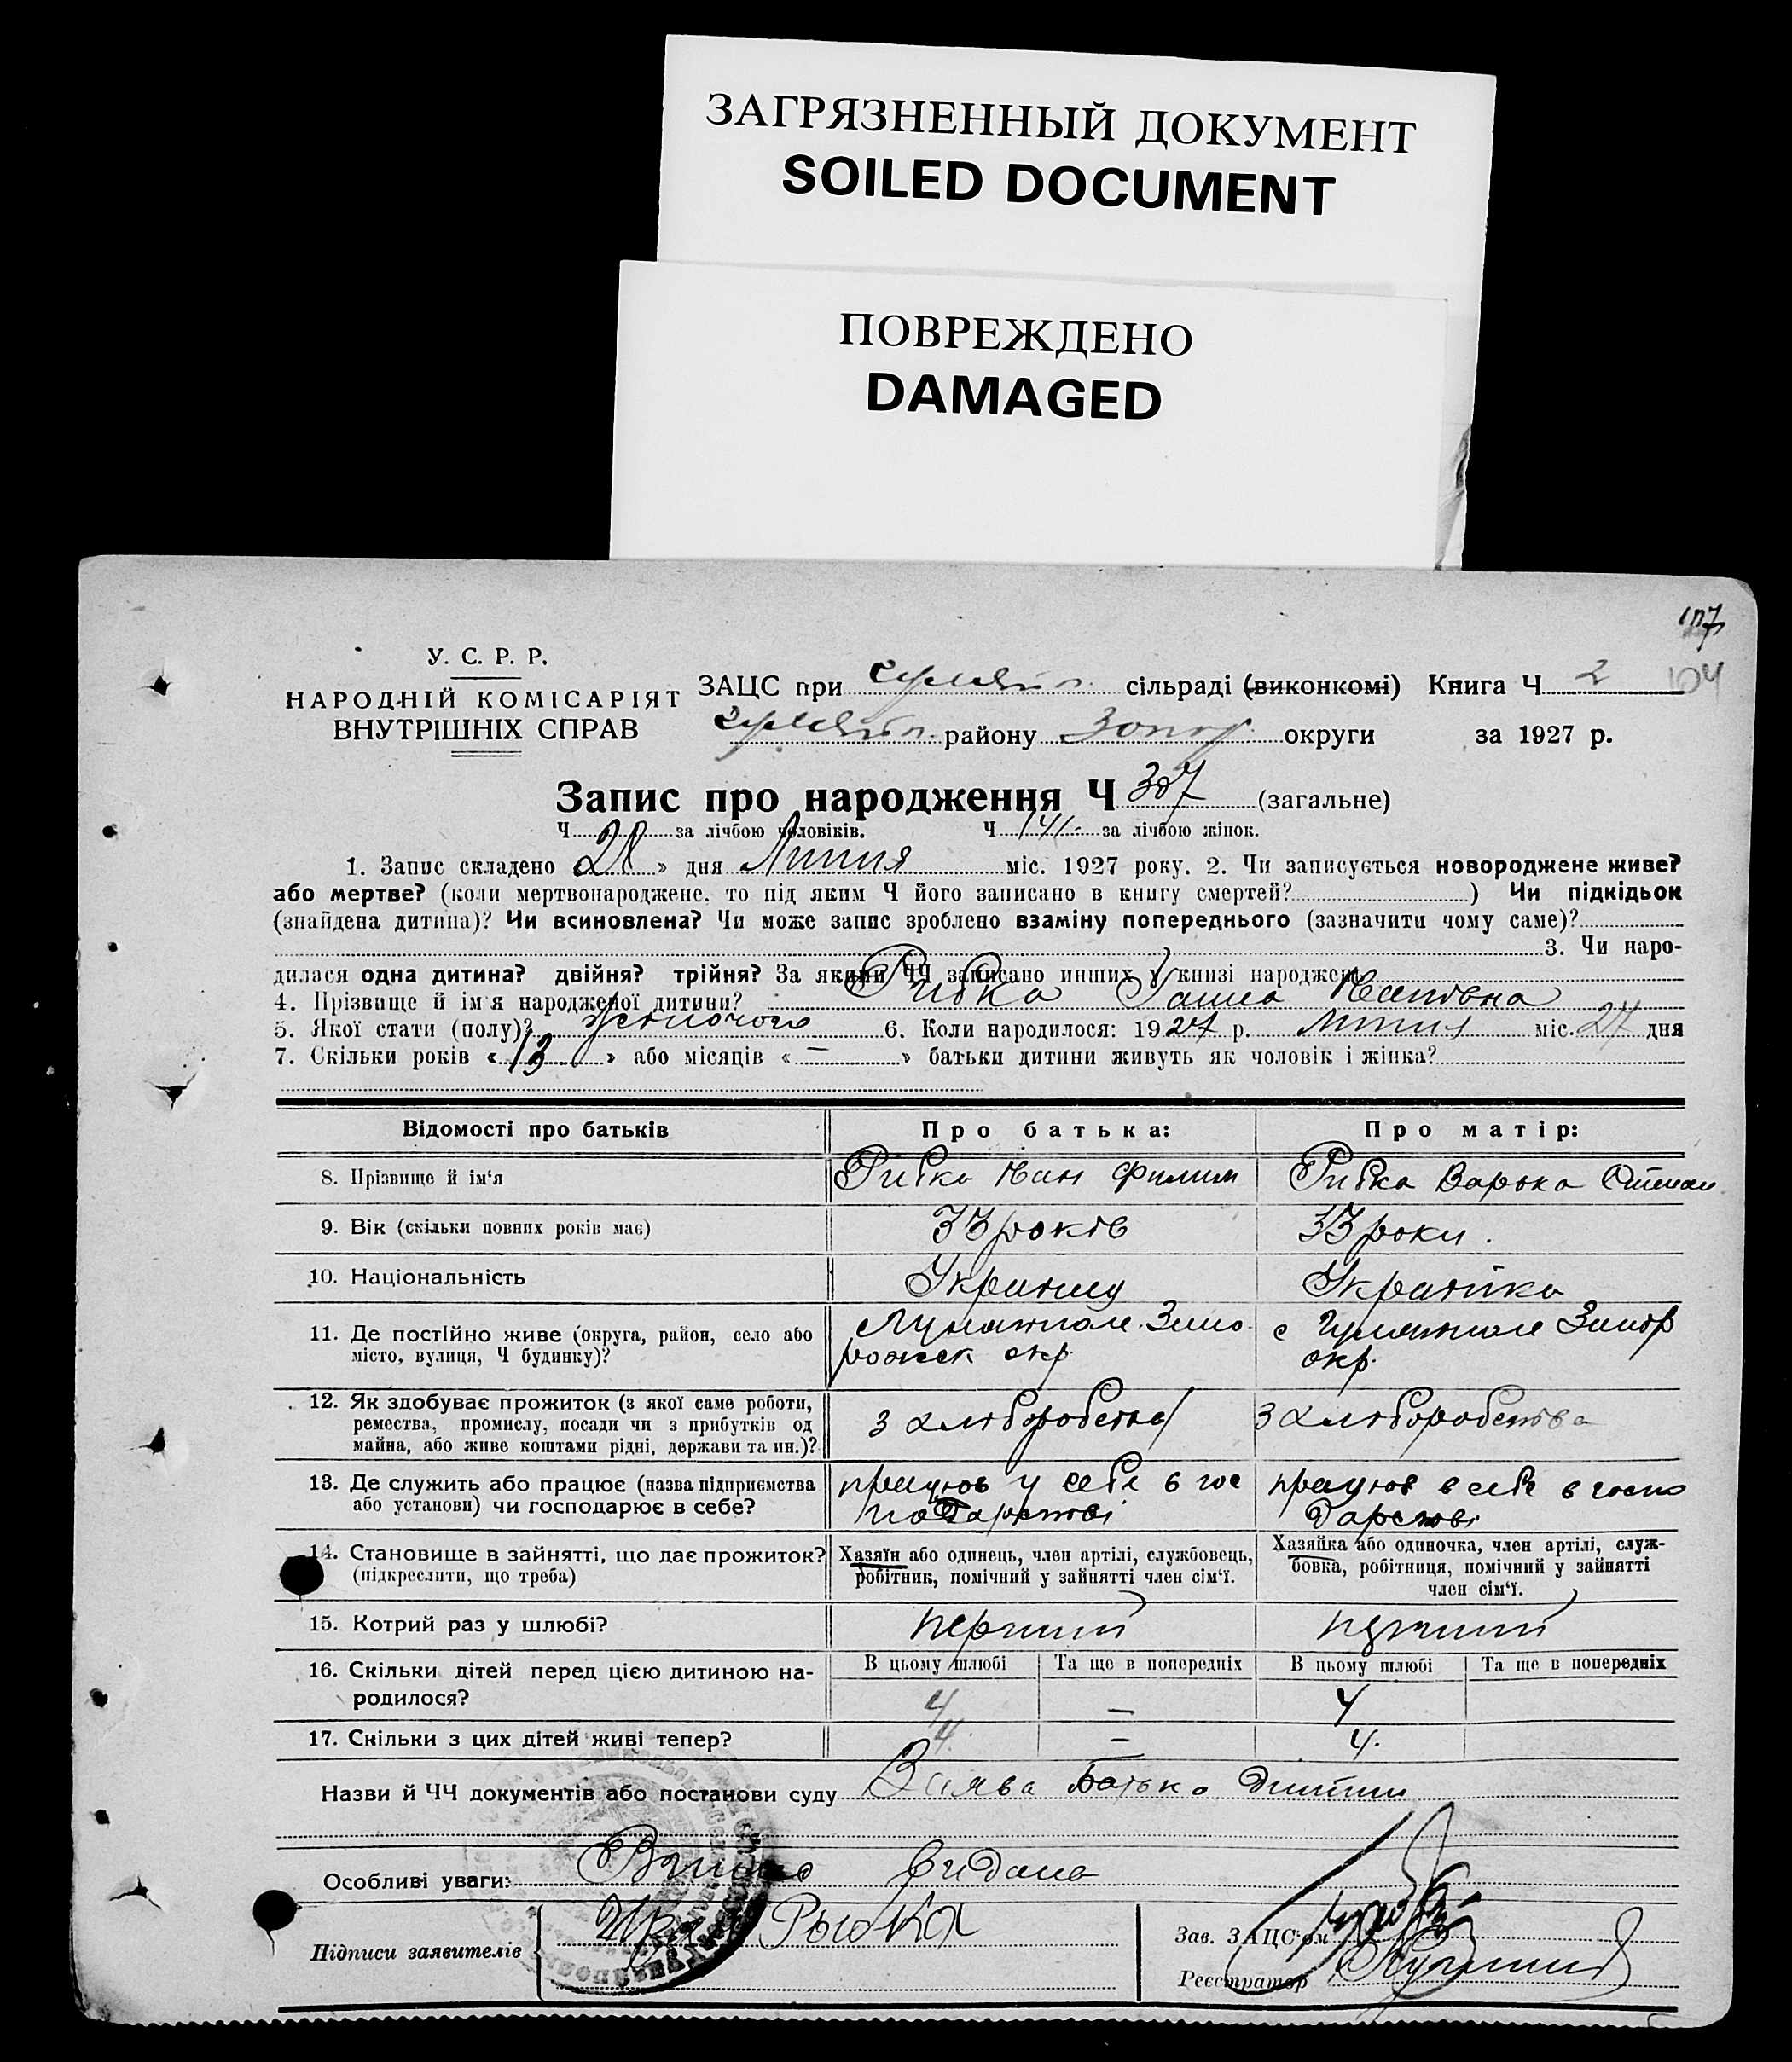 ЗАГРЯЗНЕННЫЙ ДОКУМЕНТ
SOILED DOCUMENT
ПОВРЕЖДЕНО
DAMAGED
107
104
У. С. Р. Р.
НАРОДНІЙ КОМІСАРІЯТ
ВНУТРІШНІХ СПРАВ
ЗАЦС при Гуляйп. сільраді (виконкомі) Книга Ч 2
Гуляйп. району Запор. округи за 1927 р.
Запис про народження Ч 307 (загальне)
Ч за лічбою чоловіків. Ч 141 за лічбою жінок.
1. Запис складено 28 » дня Липня міс. 1927 року. 2. Чи записується новороджене живе?
або мертве? (коли мертвонароджене, то під яким Ч його записано в книгу смертей? ) Чи підкідьок
(знайдена дитина)? Чи всиновлена? Чи може запис зроблено взаміну попереднього (зазначити чому саме)?
3. Чи наро-
дилася одна дитина? двійня? трійня? За якими ЧЧ записано инших у книзі народжень
4. Прізвище й ім'я народженої дитини? Рибка Ганна Ивановна
5. Якої стати (полу)? жіночого 6. Коли народилося: 1927 р. Липня міс. 27 дня
7. Скільки років « 13 » або місяців « — » батьки дитини живуть як чоловік і жінка?
Відомості про батьків Про батька: Про матір:
8. Прізвище й ім'я Рибка Иван Филип Рибка Варька Степан
9. Вік (скільки повних років має) 33 років 33 роки.
10. Національність Українец Українка
11. Де постійно живе (округа, район, село або
місто, вулиця, Ч будинку)? Гуляйполе Запо
рожск окр. с Гуляйполе Запор
окр.
12. Як здобуває прожиток (з якої саме роботи,
ремества, промислу, посади чи з прибутків од
майна, або живе коштами рідні, держави та ин.)? З хліборобства З хліборобства
13. Де служить або працює (назва підприємства
або установи) чи господарює в себе? працює у себе в гос
подарстві працює в себе в госпо
дарстві
14. Становище в зайнятті, що дає прожиток?
(підкреслити, що треба)
Хазяїн або одинець, член артілі, службовець,
робітник, помічний у зайнятті член сім'ї.
Хазяйка або одиночка, член артілі, служ-
бовка, робітниця, помічний у зайнятті
член сім'ї.
15. Котрий раз у шлюбі? перший перший
16. Скільки дітей перед цією дитиною на-
родилося?
В цьому шлюбі Та ще в попередніх В цьому шлюбі Та ще в попередніх
4 — 4
17. Скільки з цих дітей живі тепер? 4 — 4.
Назви й ЧЧ документів або постанови суду Заява батька дитини
Особливі уваги: видана
Підписи заявителів Рыбка
Зав. ЗАЦС'ом
Реєстратор